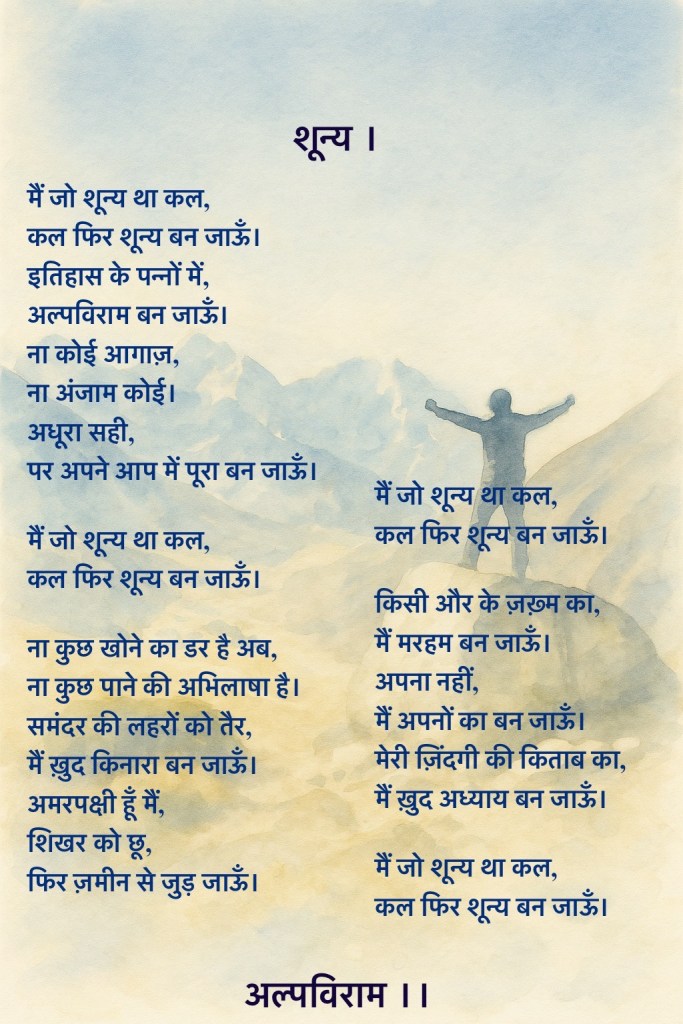 शून्य ।
मैं जो शून्य था कल,
कल फिर शून्य बन जाऊँ।
इतिहास के पन्नों में,
अल्पविराम बन जाऊँ।
ना कोई आगाज़,
ना अंजाम कोई।
अधूरा सही,
पर अपने आप में पूरा बन जाऊँ।
मैं जो शून्य था कल,
कल फिर शून्य बन जाऊँ।
ना कुछ खोने का डर है अब,
ना कुछ पाने की अभिलाषा है।
समंदर की लहरों को तैर,
मैं ख़ुद किनारा बन जाऊँ।
अमरपक्षी हूँ मैं,
शिखर को छू,
फिर ज़मीन से जुड़ जाऊँ।
मैं जो शून्य था कल,
कल फिर शून्य बन जाऊँ।
किसी और के ज़ख़्म का,
मैं मरहम बन जाऊँ।
अपना नहीं,
मैं अपनों का बन जाऊँ।
मेरी ज़िंदगी की किताब का,
मैं ख़ुद अध्याय बन जाऊँ।
मैं जो शून्य था कल,
कल फिर शून्य बन जाऊँ।
अल्पविराम ।।